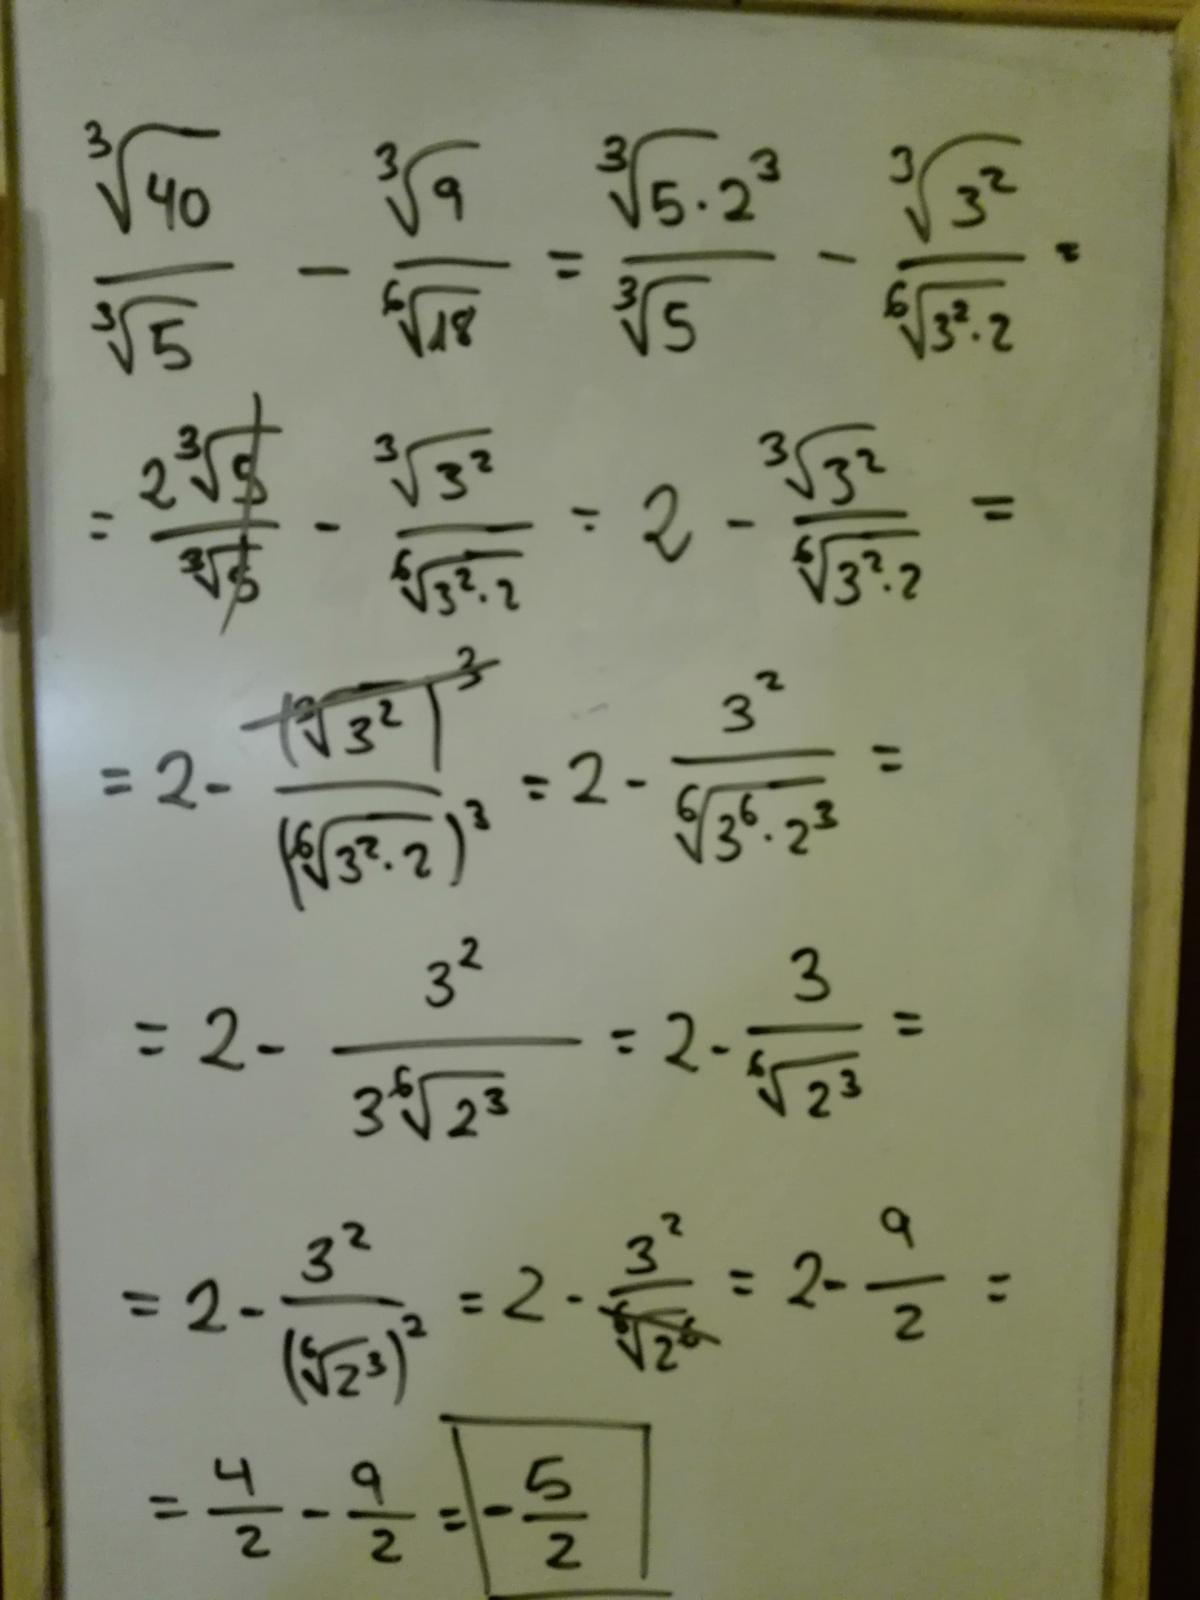 ∛40/∛5 - ∛9/⁶√18 = ∛5·2³/∛5 - ∛3²/⁶√3²·2 =
= 2∛5/∛5 - ∛3²/⁶√3²·2 = 2 - ∛3²/⁶√3²·2 =
= 2 - (∛3²)³/(⁶√3²·2)³ = 2 - 3²/⁶√3⁶·2³ =
= 2 - 3²/3⁶√2³ = 2 - 3/⁶√2³ =
= 2 - 3²/(⁶√2³)² = 2 - 3²/⁶√2⁶ = 2 - 9/2 =
= 4/2 - 9/2 = -5/2